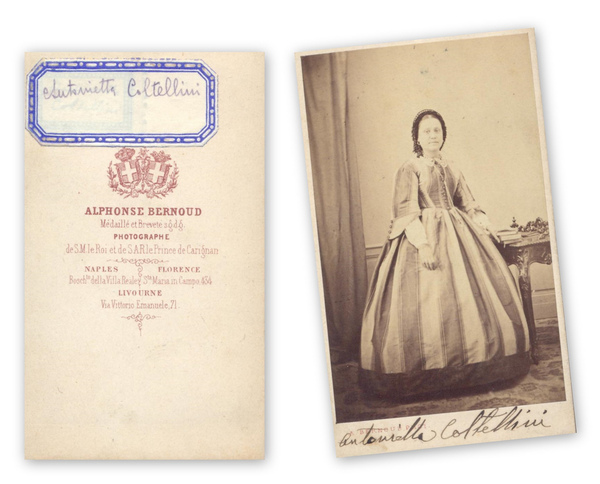 Antonietta Coltellini
ALPHONSE BERNOUD
Médaillé et Breveté s.g.d.g.
PHOTOGRAPHE
de S.M. le Roi et de S.A.R. le Prince de Carignan
NAPLES FLORENCE
della Villa Reale
LIVOURNE
Via Vittorio Emanuele, 71.
Antonietta Coltellini